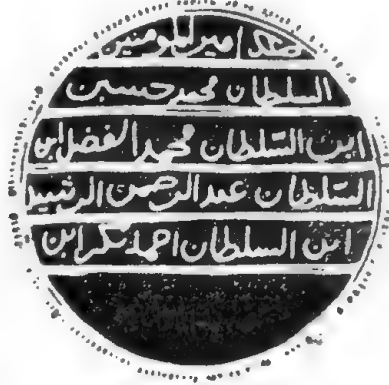 امير المومنين
السلطان محمد حسين
ابن السلطان محمد الفضل ابن
السلطان عبد الرحمن الرشيد
ابن السلطان احمد بكر ابن